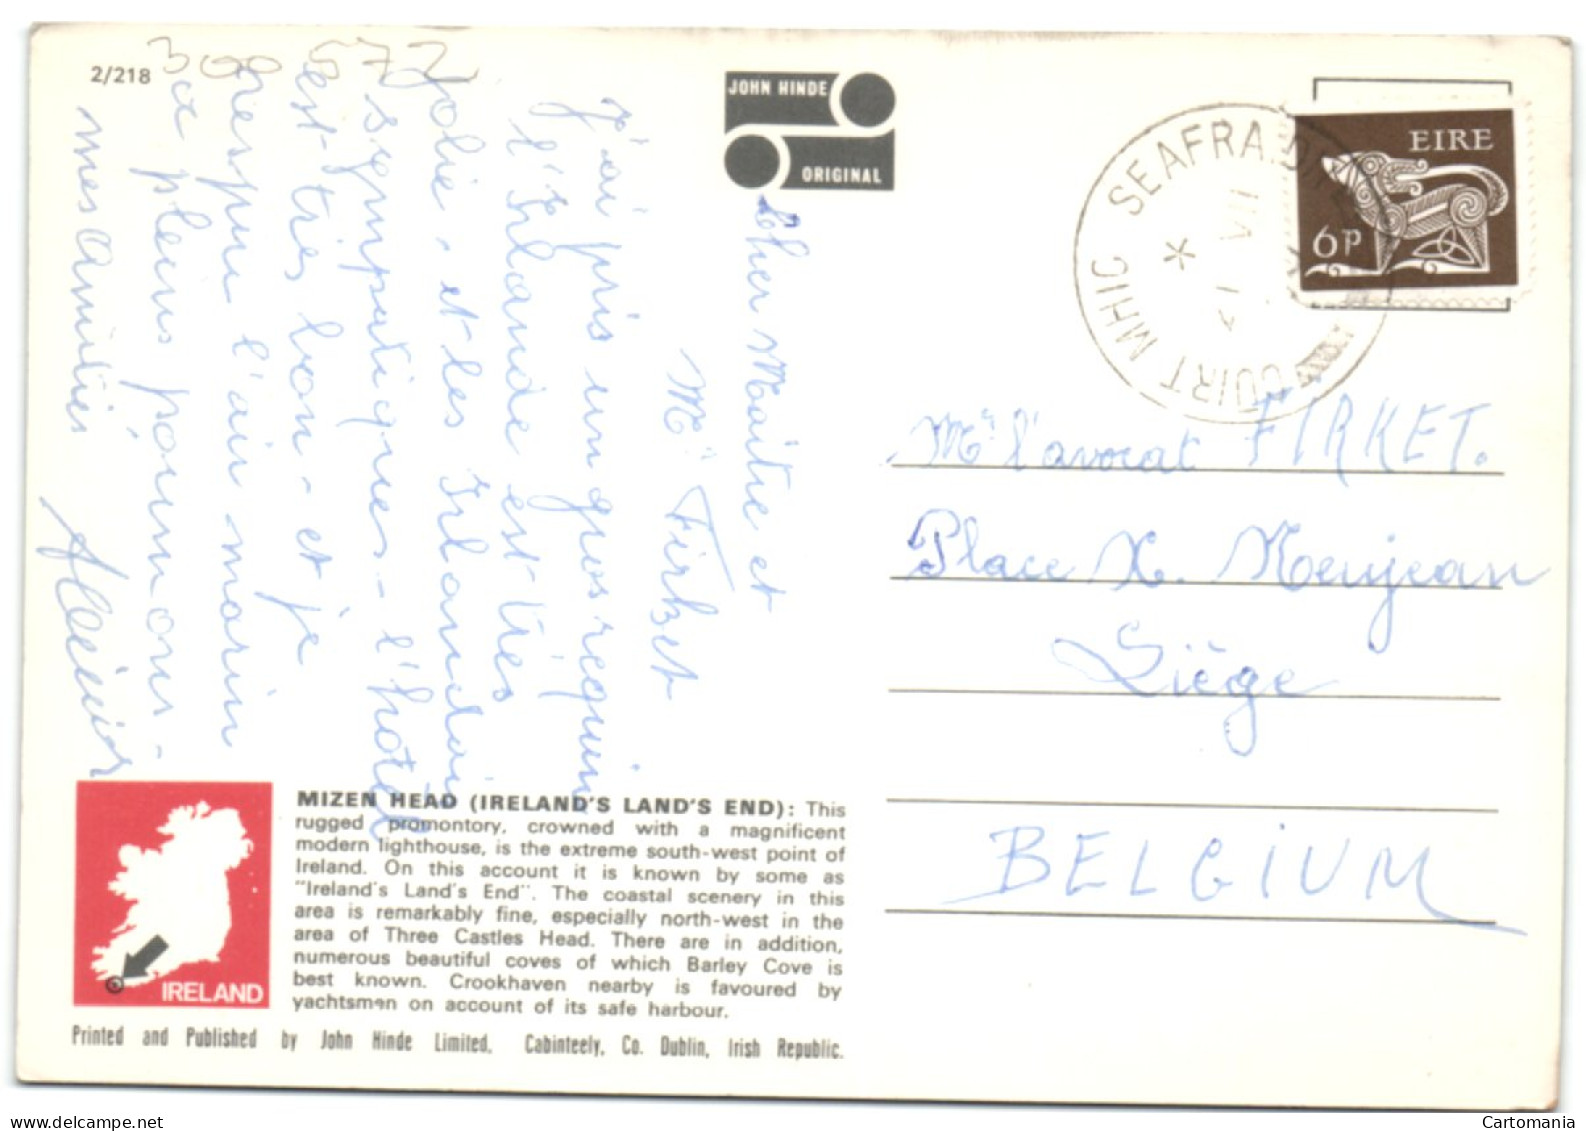 2/218
300 572
JOHN HINDE
ORIGINAL
Cher Maître et
Me Firket
J'ai pris un gros requin
l'Irlande est très
jolie - et les Irlandais
sympatiques - l'hôtel
est très bon - et je
respire l'air marin
à pleins poumons -
mes amitiés
EIRE
6P
SEAFRA.D
CÚIRT MHIC
VII
Me l'avocat FIRKET.
Place X. Neujean
Liège
BELGIUM
IRELAND
MIZEN HEAD (IRELAND'S LAND'S END): This
rugged promontory, crowned with a magnificent
modern lighthouse, is the extreme south-west point of
Ireland. On this account it is known by some as
"Ireland's Land's End". The coastal scenery in this
area is remarkably fine, especially north-west in the
area of Three Castles Head. There are in addition,
numerous beautiful coves of which Barley Cove is
best known. Crookhaven nearby is favoured by
yachtsmen on account of its safe harbour.
Printed and Published by John Hinde Limited, Cabinteely, Co. Dublin, Irish Republic.
Cartomania